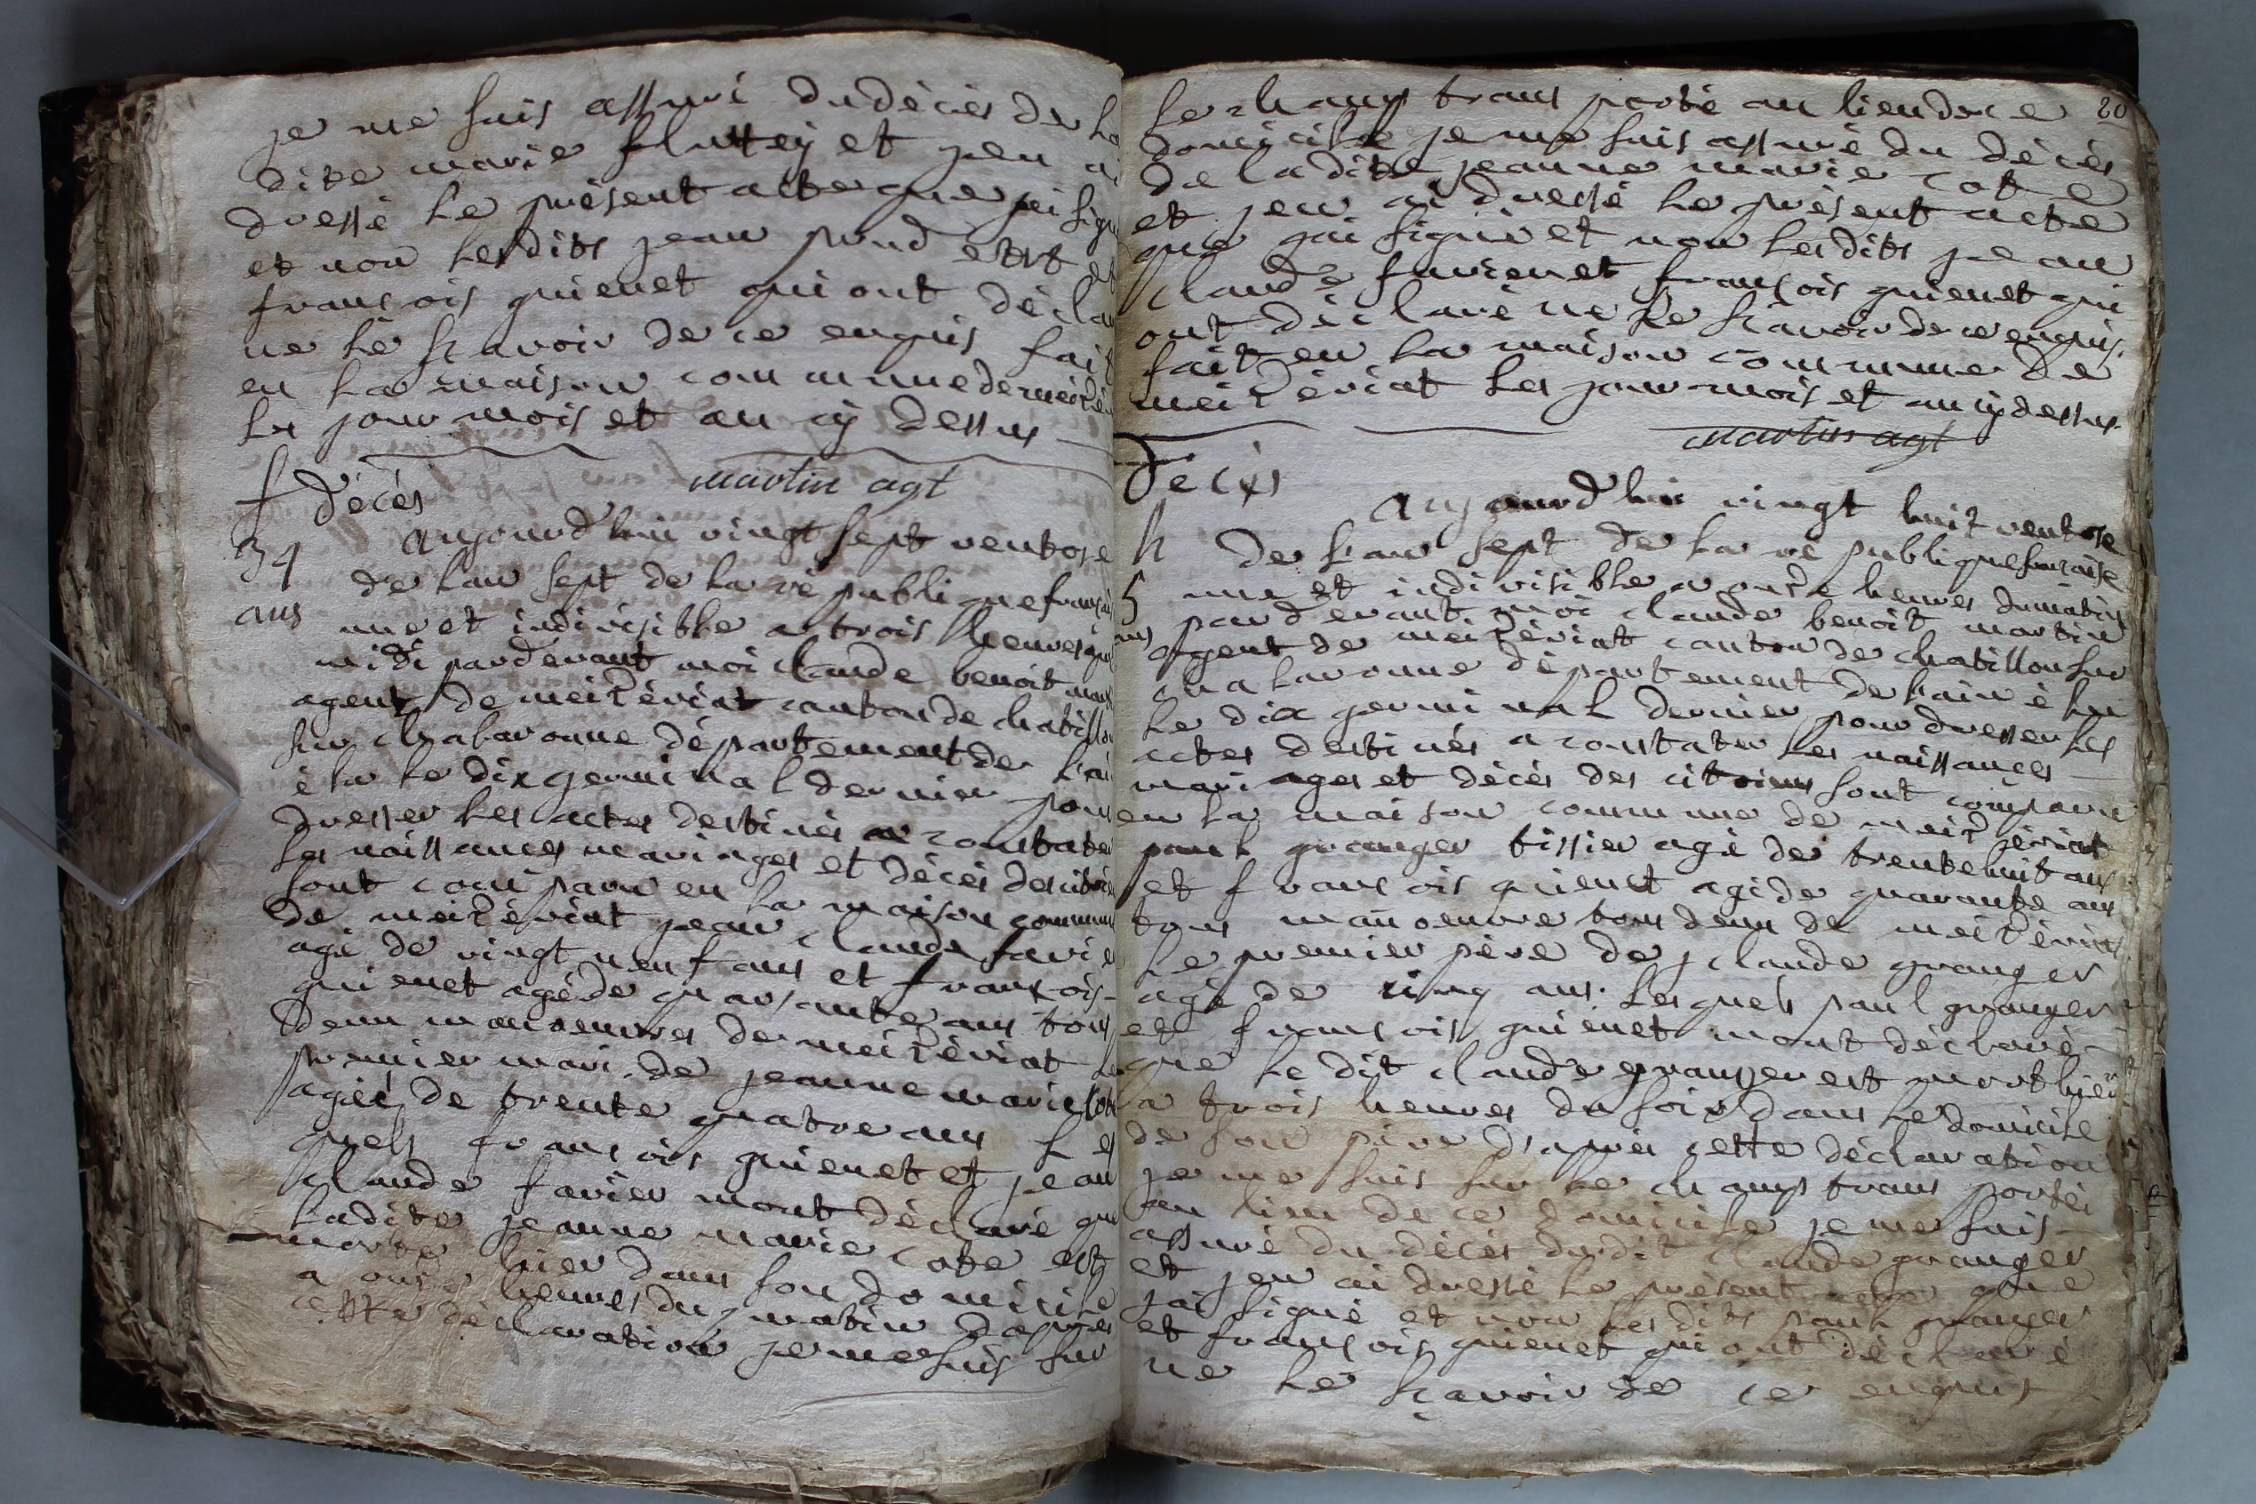 je me suis assuré du décès de la
dite marie fluttey et jen ai
dressé le présent acte que jai signé
et non lesdits jean et
francois guienet qui ont décla
ne le scavoir de ce enquis fait
en la maison commune de meizéria
les jour mois et an cy dessus
martin agt
f décès
34 aujourd'hui vingt sept ventose
ans de lan sept de la république française
une et indivisible a trois heures après
midi pardevant moi claude benoit martin
agent de meizériat canton de chatillon
sur chalaronne département de l'ain
élu le dix germinal dernier pour
dresser les actes destinés a constater
les naissances mariages et décès des citoiens
sont comparu en la maison commune
de meizériat jean claude favier
agé de vingt neuf ans et francois
guienet agé de quarante ans tous
deux manoeuvres de meizériat le
premier mari de jeanne marie cote
agée de trente quatre ans les
quels francois guienet et jean
claude favier mont déclaré que
ladite jeanne marie cote est
morte hier dans son domicile
a onze heures du matin d'apres
cette déclaration je me suis sur
20
le champ trans porté au lieu de ce
domicile je me suis assuré du décès
de ladite jeanne marie cote
et jen ai dressé le présent acte
que jai signé et non lesdits jean
claude favier et francois guienet qui
ont déclaré ne le scavoir de ce enquis.
fait en la maison commune de
meizériat les jour mois et an cy dessus
martin agt
décès
h aujourd'hui vingt huit ventose
5 de lan sept de la république française
ans une et indivisible a onze heures du matin
par devant moi claude benoit martin
agent de meizériat canton de chatillon sur
chalaronne département de lain élu
le dix germinal dernier pour dresser les
actes destinés a constater les naissances
mariages et décès des citoiens sont comparu
en la maison commune de meizériat
paul granger tissier agé de trente huit ans
et francois guienet agé de quarante ans
tous manoeuvre tous deux de meizériat
le premier père de claude granger
agé de cinq ans. lesquels paul granger
et francois guienet mont déclaré
que le dit claude granger est mort hier
a trois heures du soir dans le domicile
de son père d'après cette déclaration
je me suis sur le champ trans porté
au lieu de ce domicile je me suis
assuré du décès dudit claude granger
et jen ai dressé le présent acte que
jai signé et non les dits paul granger
et francois guienet qui ont déclaré
ne le scavoir de ce enquis